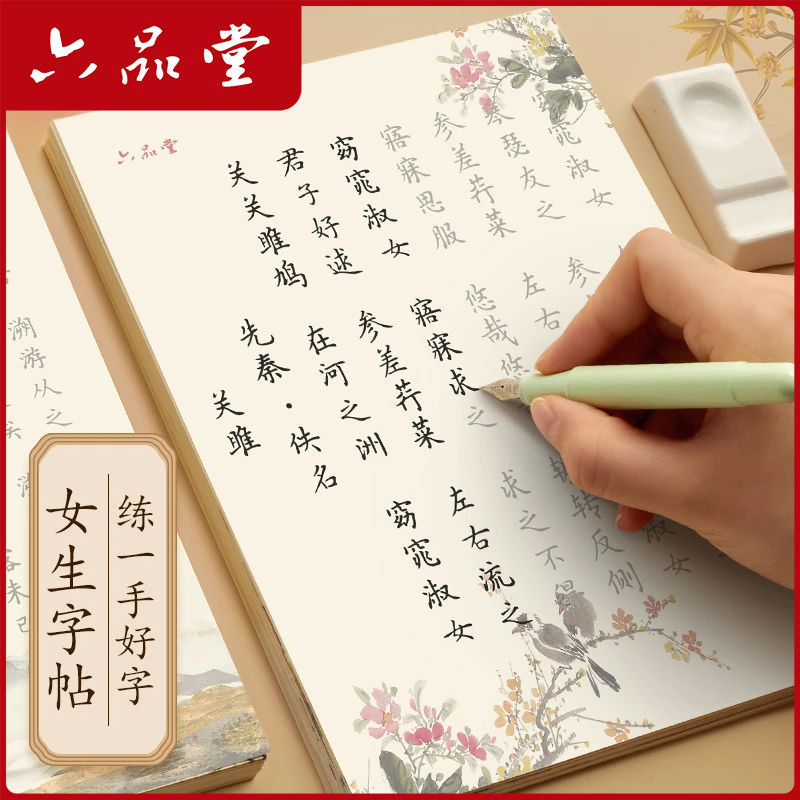 六品堂
六品堂
关雎
先秦·佚名
关关雎鸠 在河之洲 窈窕淑女
君子好逑 参差荇菜 左右流之
窈窕淑女 寤寐求之 求之不得
寤寐思服 悠哉悠 转反侧
参差荇菜 左右 淑女
琴瑟友之 参
窈窕淑女
溯游从之
未已
练一手好字
女生字帖